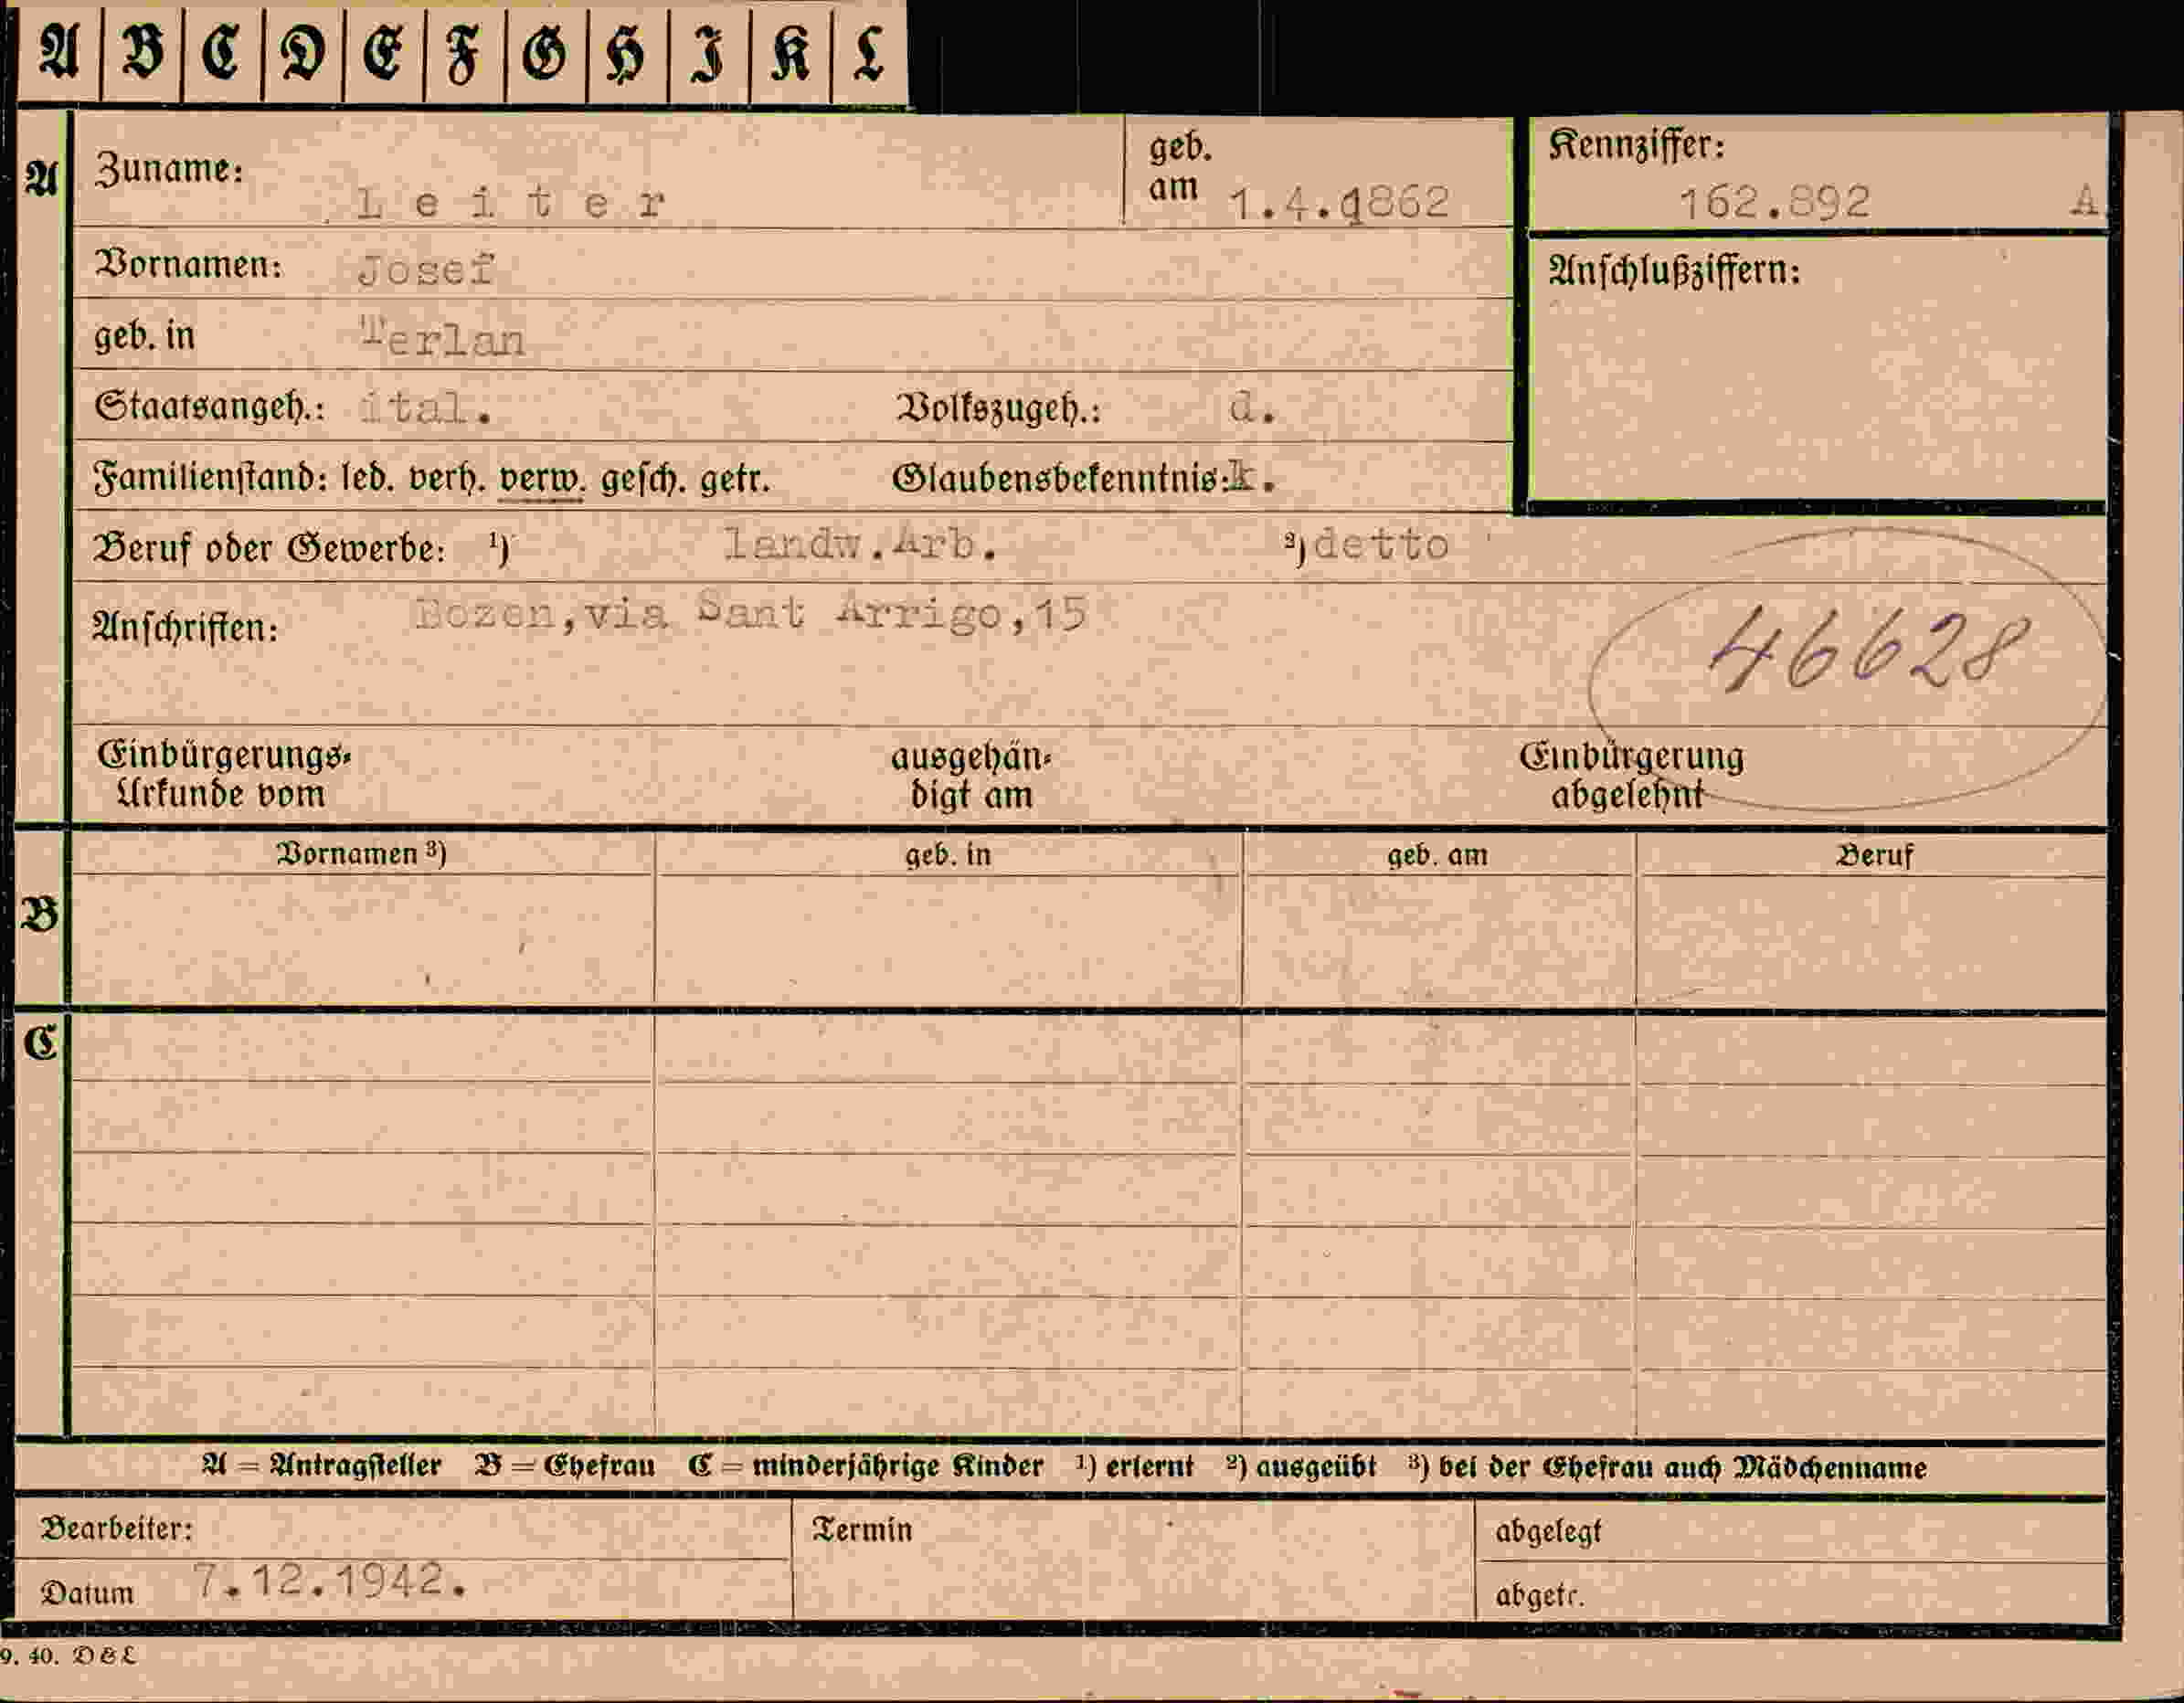 A B C D E F G H I K L
A Zuname: Leiter geb. am 1.4.1862 Kennziffer: 162.892 A
Vornamen: Josef Anschlußziffern:
geb. in Terlan
Staatsangeh.: ital. Volkszugeh.: d.
Familienstand: led. verh. verw. gesch. getr. Glaubensbekenntnis: k.
Beruf oder Gewerbe: ¹) landw.Arb. ²) detto
Anschriften: Bozen,via Sant Arrigo,15
46628
Einbürgerungs-
Urkunde vom
ausgehän-
digt am
Einbürgerung
abgelehnt
B Vornamen ³) geb. in geb. am Beruf
C
A = Antragsteller B = Ehefrau C = minderjährige Kinder ¹) erlernt ²) ausgeübt ³) bei der Ehefrau auch Mädchenname
Bearbeiter: Termin abgelegt
Datum 7.12.1942. abgetr.
9. 40. D & L